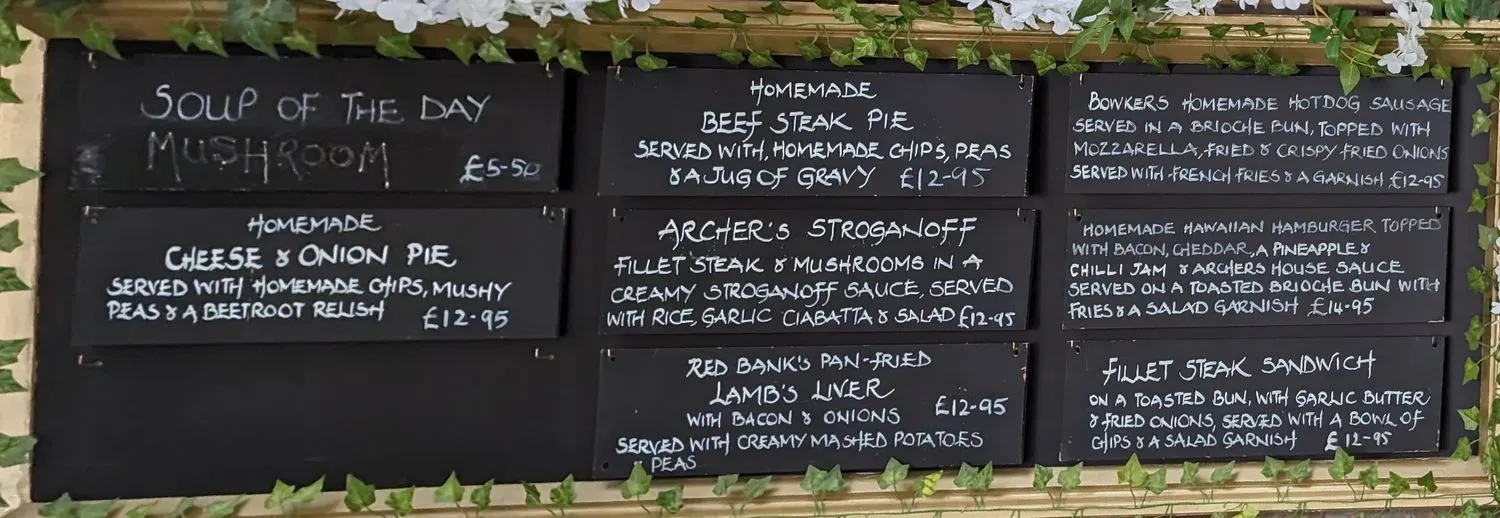 SOUP OF THE DAY
MUSHROOM
£5-50
HOMEMADE
CHEESE & ONION PIE
SERVED WITH HOMEMADE CHIPS, MUSHY
PEAS & A BEETROOT RELISH £12-95
HOMEMADE
BEEF STEAK PIE
SERVED WITH, HOMEMADE CHIPS, PEAS
& A JUG OF GRAVY £12-95
ARCHER'S STROGANOFF
FILLET STEAK & MUSHROOMS IN A
CREAMY STROGANOFF SAUCE, SERVED
WITH RICE, GARLIC CIABATTA & SALAD £12-95
RED BANK'S PAN-FRIED
LAMB'S LIVER
WITH BACON & ONIONS £12-95
SERVED WITH CREAMY MASHED POTATOES
PEAS
BOWKERS HOMEMADE HOTDOG SAUSAGE
SERVED IN A BRIOCHE BUN, TOPPED WITH
MOZZARELLA, FRIED & CRISPY FRIED ONIONS
SERVED WITH FRENCH FRIES & A GARNISH £12-95
HOMEMADE HAWAIIAN HAMBURGER TOPPED
WITH BACON, CHEDDAR, A PINEAPPLE &
CHILLI JAM & ARCHERS HOUSE SAUCE
SERVED ON A TOASTED BRIOCHE BUN WITH
FRIES & A SALAD GARNISH £14-95
FILLET STEAK SANDWICH
ON A TOASTED BUN, WITH GARLIC BUTTER
& FRIED ONIONS, SERVED WITH A BOWL OF
CHIPS & A SALAD GARNISH £12-95